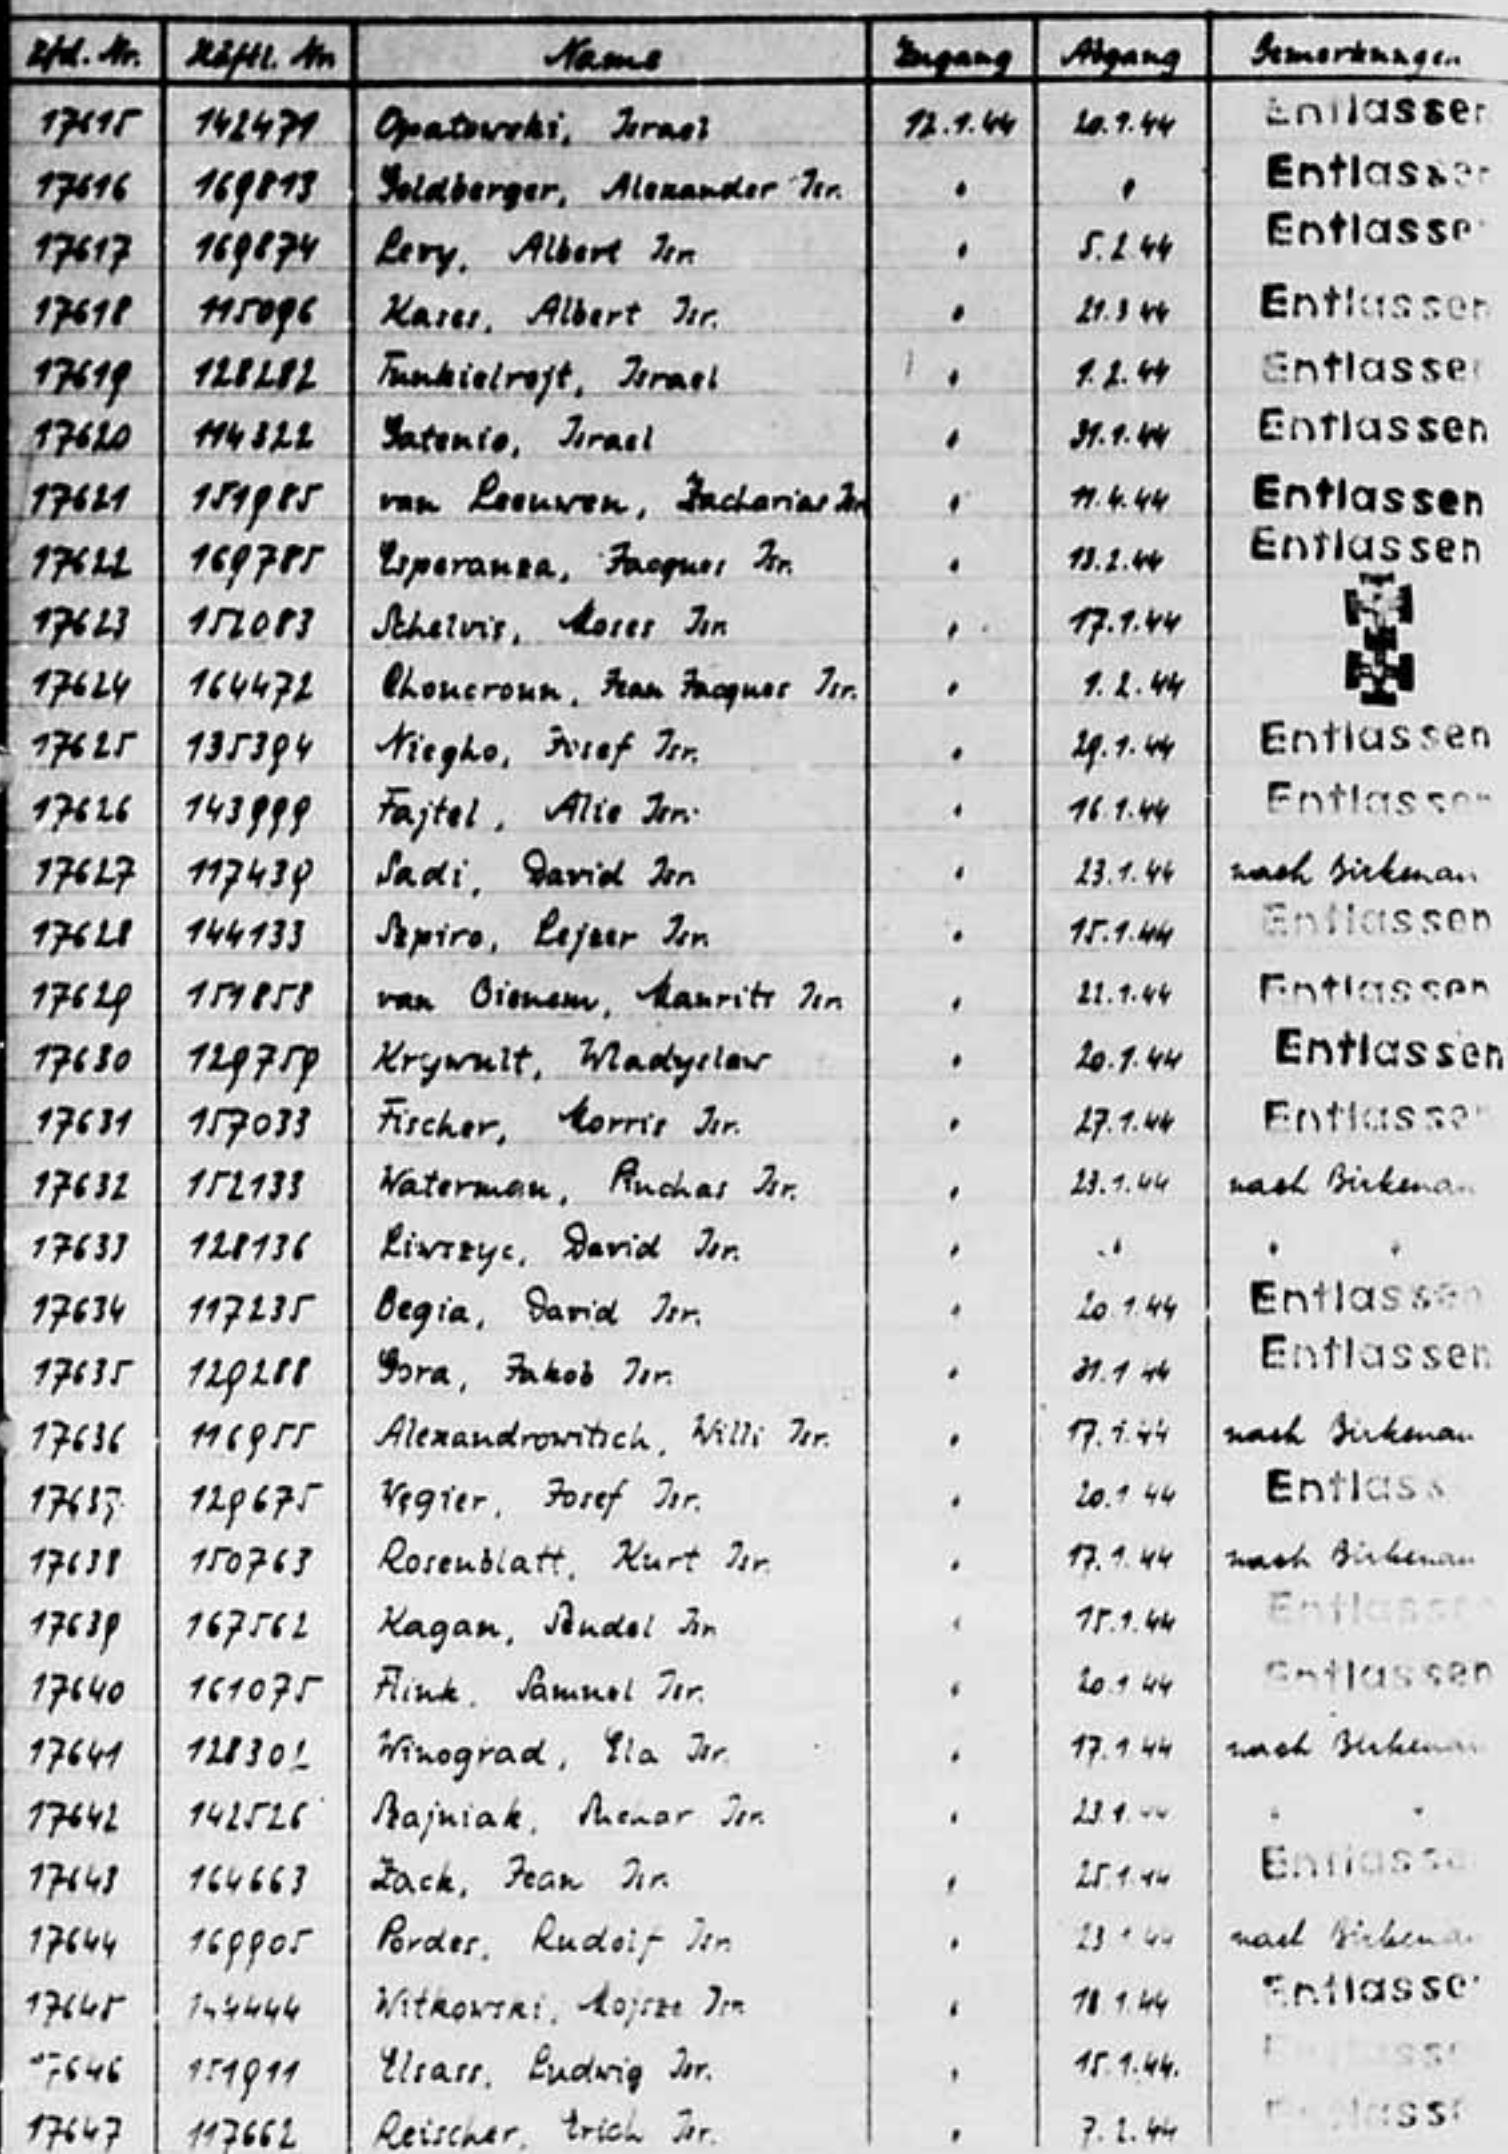 Lfd. Nr. Häftl. Nr. Name Zugang Abgang Bemerkungen
17615 142471 Opatowski, Israel 12.1.44 20.1.44 Entlassen
17616 169813 Goldberger, Alexander Isr. " " Entlassen
17617 169874 Levy, Albert Isr. " 5.2.44 Entlassen
17618 115096 Kases, Albert Isr. " 21.3.44 Entlassen
17619 128282 Funkielrejt, Israel " 1.2.44 Entlassen
17620 114322 Gatenio, Israel " 31.1.44 Entlassen
17621 151985 van Leeuwen, Zacharias Isr. " 11.4.44 Entlassen
17622 169785 Esperanza, Jacques Isr. " 13.2.44 Entlassen
17623 152083 Schelvis, Moses Isr. " 17.1.44
17624 164472 Choucroun, Jean Jacques Isr. " 1.2.44
17625 135394 Niegho, Josef Isr. " 29.1.44 Entlassen
17626 143999 Fajtel, Alie Isr. " 16.1.44 Entlassen
17627 117439 Sadi, David Isr. " 23.1.44 nach Birkenau
17628 144133 Szpiro, Lejzer Isr. " 15.1.44 Entlassen
17629 151858 van Bienem, Maurits Isr. " 22.1.44 Entlassen
17630 129759 Krywult, Wladyslaw " 20.1.44 Entlassen
17631 157033 Fischer, Morris Isr. " 27.1.44 Entlassen
17632 152133 Waterman, Pinchas Isr. " 23.1.44 nach Birkenau
17633 128136 Liwszyc, David Isr. " " " "
17634 117235 Begia, David Isr. " 20.1.44 Entlassen
17635 129288 Gora, Jakob Isr. " 31.1.44 Entlassen
17636 116955 Alexandrowitsch, Willi Isr. " 17.1.44 nach Birkenau
17637 129675 Wegier, Josef Isr. " 20.1.44 Entlassen
17638 150763 Rosenblatt, Kurt Isr. " 17.1.44 nach Birkenau
17639 167562 Kagan, Sendel Isr. " 15.1.44 Entlassen
17640 161075 Flink, Samuel Isr. " 20.1.44 Entlassen
17641 128302 Winograd, Ela Isr. " 17.1.44 nach Birkenau
17642 142526 Isr. " 23.1.44 " "
17643 164663 Zack, Jean Isr. " 25.1.44 Entlassen
17644 169905 Pordes, Rudolf Isr. " 23.1.44 nach Birkenau
17645 144444 Witkowski, Mojsze Isr. " 18.1.44 Entlassen
17646 151911 Elsass, Ludwig Isr. " 15.1.44. Entlassen
17647 117662 Reischer, Erich Isr. " 7.2.44 Entlassen